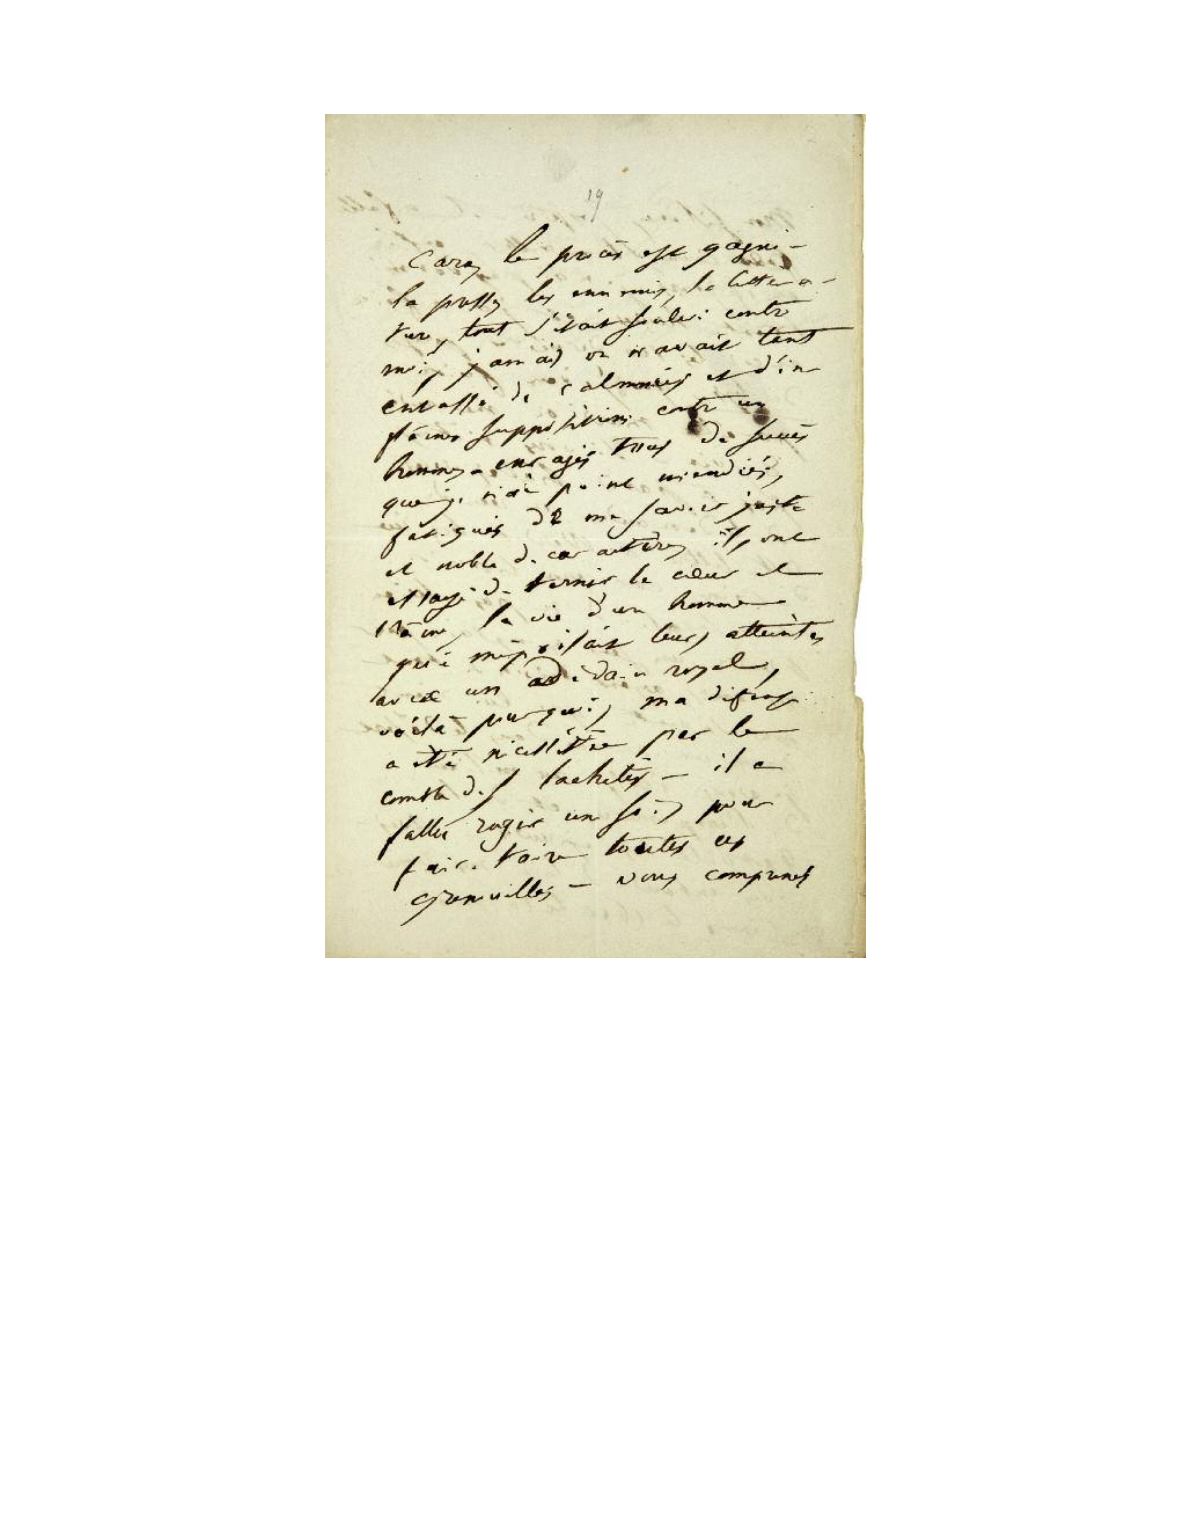 19
Cara, le procès est gagné –
la presse les ennemis, la littéra-
ture, tout s'était soulevé contre
moi, jamais on n'avait tant
entassé de calomnies et d'in
fâmes suppositions contre un
homme – enragés tous de succès
que je n'ai point mendiés,
fatigués de me savoir juste
et noble de caractère, ils ont
essayé de ternir le cœur et
l'âme, la vie d'un homme
qui méprisait leurs atteintes
avec un dédain royal,
voilà pourquoi, ma défense
a été nécessitée par le
comble des lachetés – il a
fallu rugir un fois pour
faire taire toutes ces
grenouilles – vous comprenez